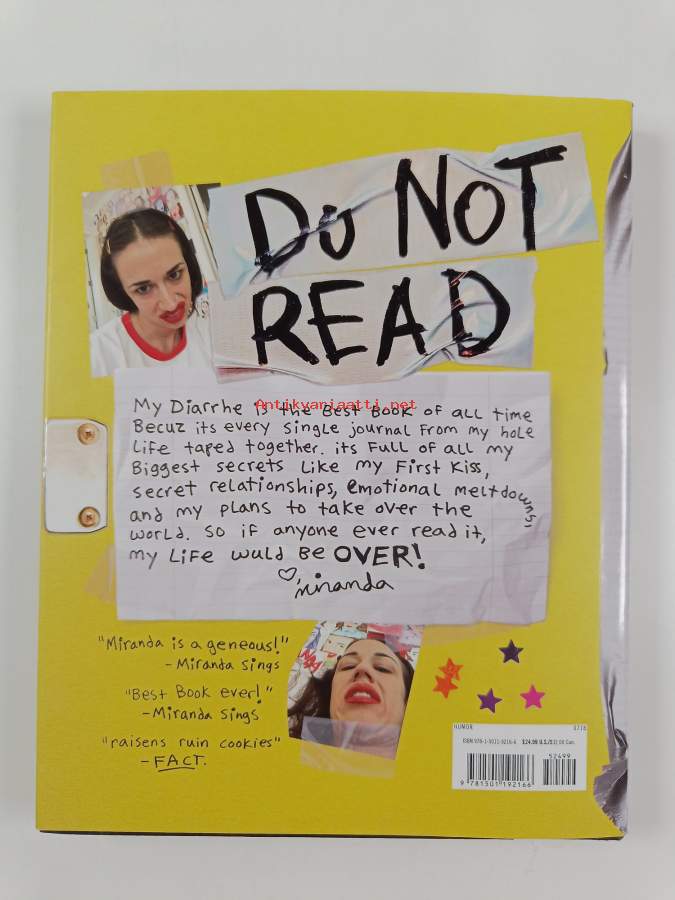 DO NOT
READ
My Diarrhe is the Best Book of all time
Becuz its every single journal from my hole
Life taped together. its full of all my
Biggest secrets Like my First Kiss,
secret relationships, emotional meltdowns,
and my plans to take over the
world. so if anyone ever read it,
my LiFe wuld Be OVER!
miranda
Antikvariaatti.net
"Miranda is a geneous!"
- Miranda Sings
"Best Book ever!"
- Miranda Sings
"raisens ruin cookies"
- FACT.
HUMOR 0716
ISBN 978-1-5011-9216-6 $24.99 U.S./$32.00 Can.
52499
9 781501 192166